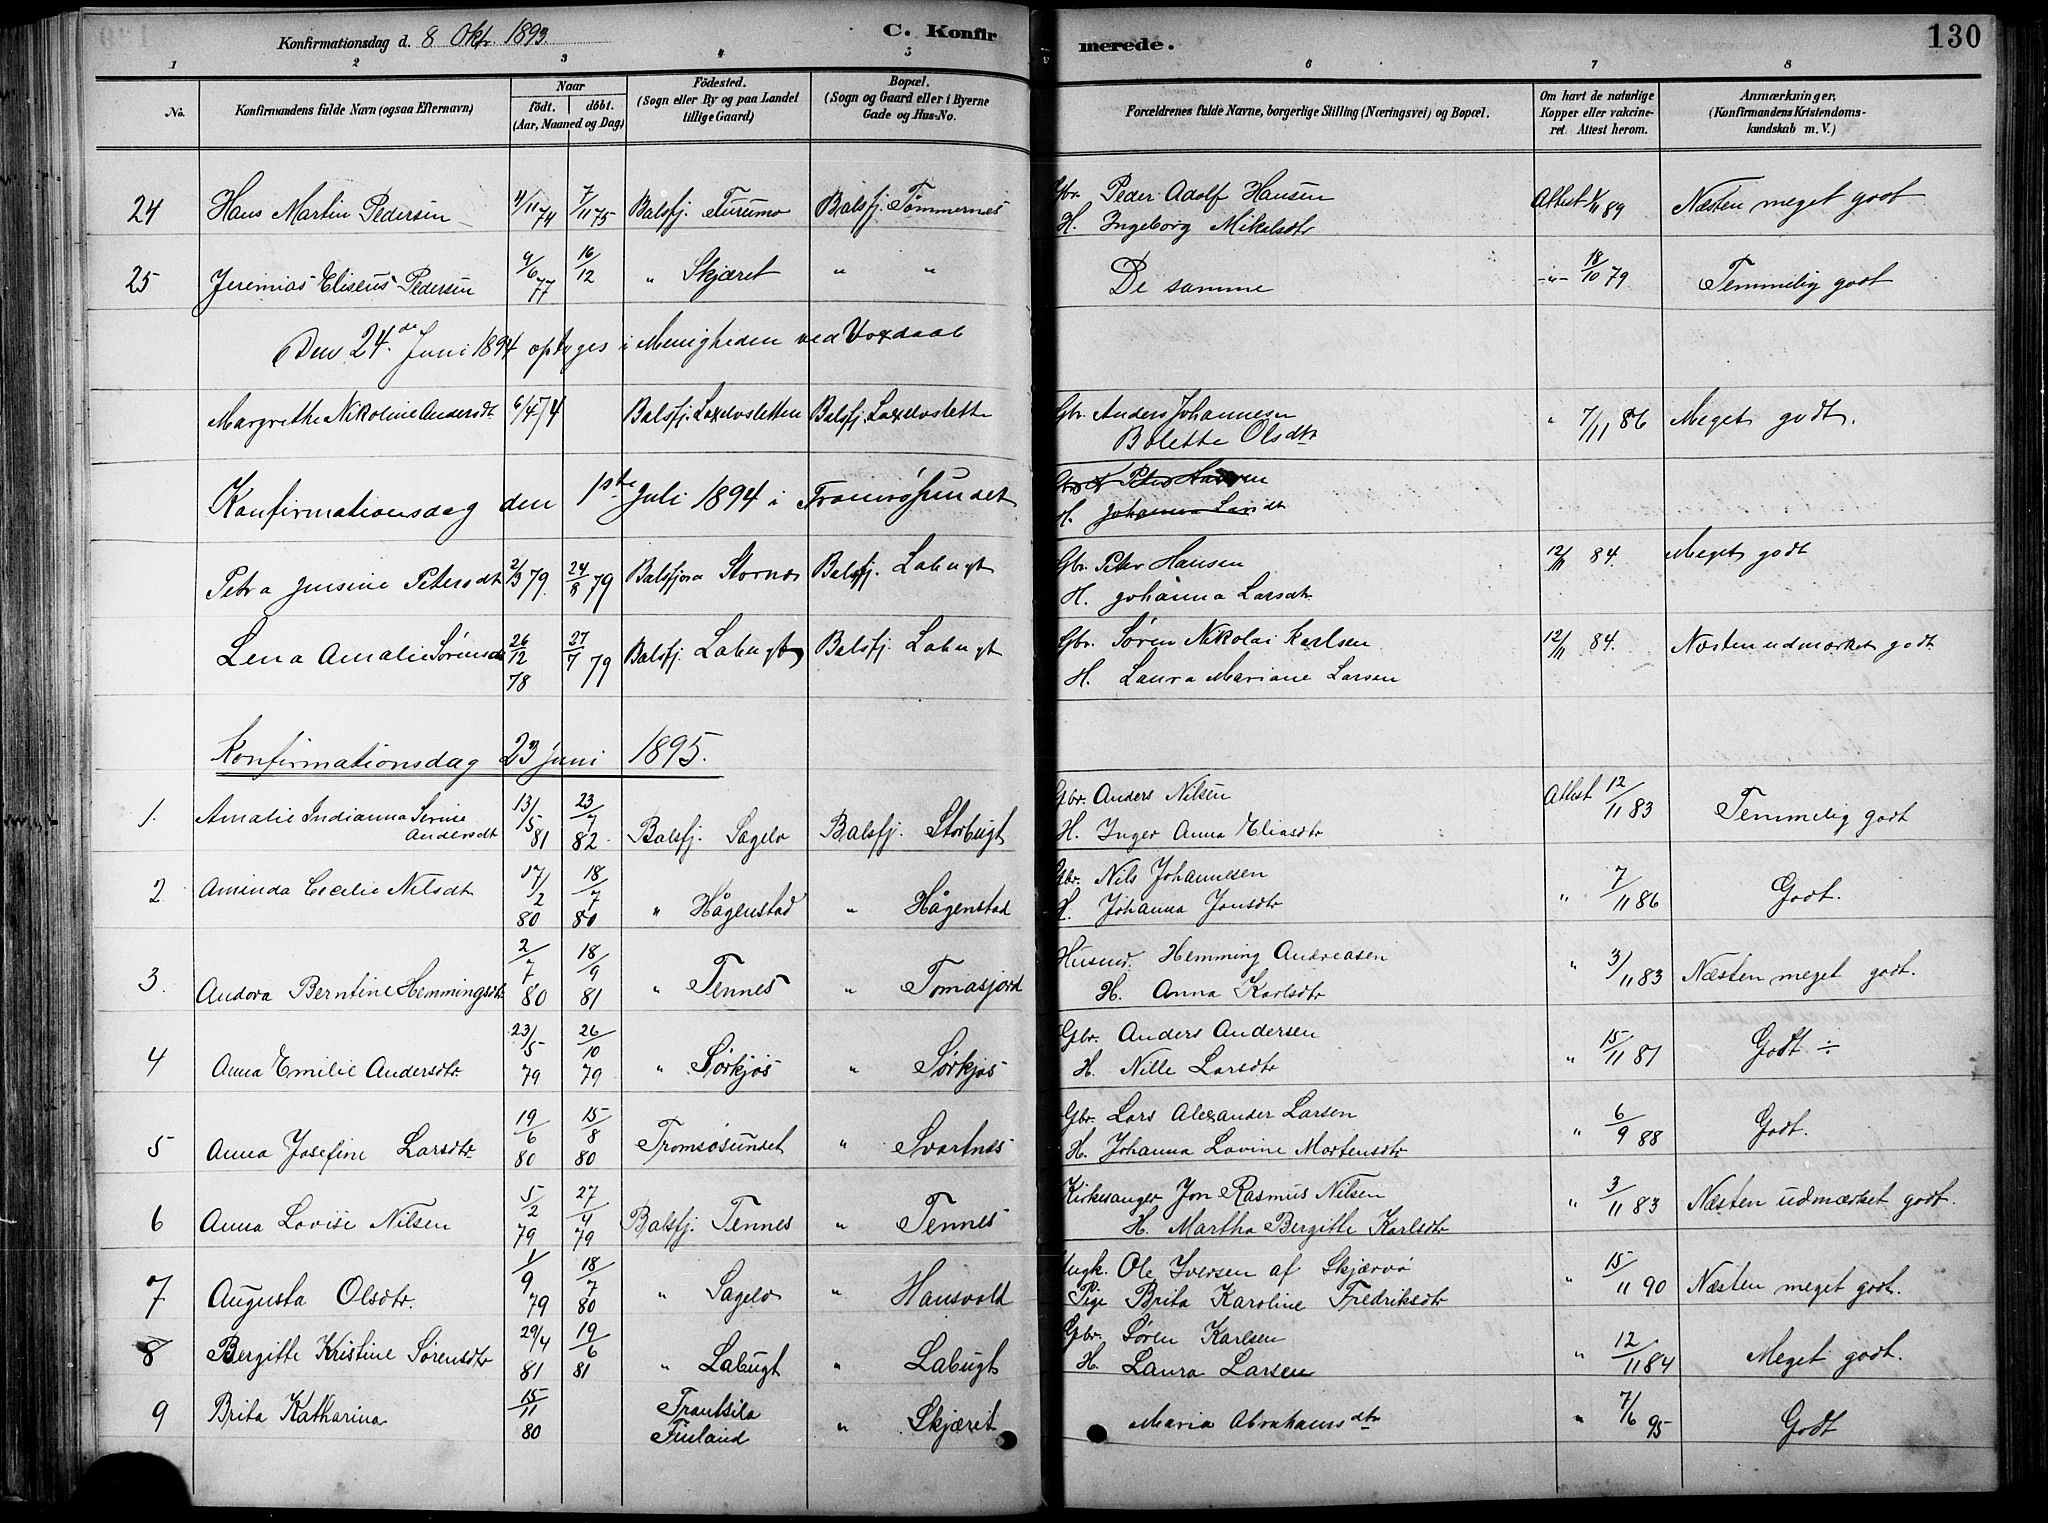 Konfirmationsdag d. 8 Oktr. 1893
C. Konfir
merede.
130
1 2 3 4 5 6 7 8
No.
Konfirmandens fulde Navn (ogsaa Efternavn)
Naar
födt. döbt.
(Aar, Maaned og Dag)
Födested.
(Sogn eller By og paa Landet
tillige Gaard)
Bopæl.
(Sogn og Gaard eller i Byerne
Gade og Hus-No.
Forældrenes fulde Navne, borgerlige Stilling (Næringsvei) og Bopæl.
Om havt de naturlige
Kopper eller vakcine-
ret. Attest herom.
Anmærkninger.
(Konfirmandens Kristendoms-
kundskab m. V.)
24 Hans Martin Pedersen 4/11 74 7/11 75 Balsfj. Furumo Balsfj. Tømmernes Gbr. Peder Adolf Hansen Attest 1/11 89 Næsten meget godt
H. Ingeborg Mikalsdtr
25 Jeremias Eliseus Pedersen 9/6 77 16/12 " Skjæret " " De samme -"- 18/10 79 Temmelig godt
Den 24de Juni 1894 optoges i Menigheden ved
Margrethe Nikoline Andersdt 6/4 74 Balsfj. Laxelvsletten Balsfj. Laxelvslette Gbr. Anders Johannesen " 7/11 86 Meget godt.
Bolette Olsdtr
Konfirmationsdag den 1ste Juli 1894 i Tromsøsundet Peter Hansen
H. Johanna Larsdt
Petra Jensine Petersdt 2/3 79. 24/8 79 Balsfjord Stornes Balsfj. Labugt Gbr. Peter Hansen 12/11 84. Meget godt
H. Johanna Larsdtr
Lena Amalie Sørensdt 26/12 78 27/7 79 Balsfj. Labugt Balsfj. Labugt Gbr. Søren Nikolai Karlsen 12/11 84. Næsten udmærket godt
H. Laura Mariane Larsen
Konfirmationsdag 23 Juni 1895.
1. Amalie Indianna Serine 13/5 81 23/7 82 Balsfj. Sagelv Balsfj. Storbugt Gbr. Anders Nilsen Attest 12/11 83 Temmelig godt
Andersdt H. Inger Anna Eliasdtr
2 Aminda Cecilie Nilsdt 17/2 80 18/7 80 " Hågenstad " Hågenstad Gbr. Nils Johannesen " 7/11 86 Godt.
H. Johanna Jonsdtr
3. Andora Berntine Hemmingsdtr 2/7 80 18/9 81 " Tennes " Tomasjord Husmd. Hemming Andreasen " 3/11 83 Næsten meget godt.
H. Anna Karlsdtr
4 Anna Emilie Andersdtr. 23/5 79 26/10 79 " Sørkjos " Sørkjos Gbr. Anders Andersen " 15/11 87 Godt ÷
H. Nille Larsdtr
5 Anna Josefine Larsdtr. 19/6 80 15/8 80 Tromsøsundet " Svartnes Gbr. Lars Alexander Larsen " 6/9 88 Godt.
H. Johanna Lovine Mortensdtr
6 Anna Lovise Nilsen 5/2 79 27/4 79 Balsfj. Tennes " Tennes Kirkesanger Jon Rasmus Nilsen " 3/11 83 Næsten udmærket godt.
H. Martha Bergitte Karlsdtr
7 Augusta Olsdtr. 1/9 79 18/7 80 " Sagelv " Hansvold Ungk. Ole Iversen af Skjærvø " 15/11 90 Næsten meget godt.
Pige Brita Karoline Fredriksdtr
8 Bergitte Kristine Sørensdtr 29/4 81 19/6 81 " Labugt " Labugt Gbr. Søren Karlsen " 12/11 84 Meget godt.
H. Laura Larsen
9 Brita Katharina 15/11 80 Frantsila " Skjæret Maria Abrahamsdtr " 7/6 95 Godt
Finland